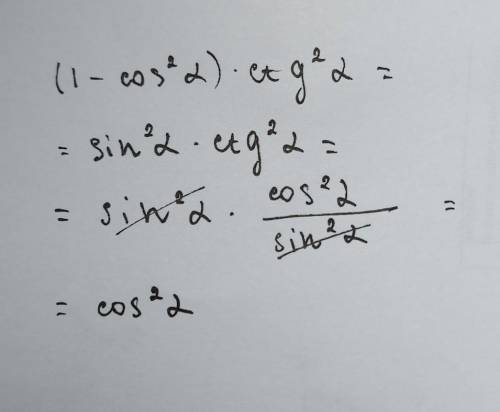 (1 - cos²α) · ctg²α =
= sin²α · ctg²α =
= sin²α · cos²α / sin²α =
= cos²α